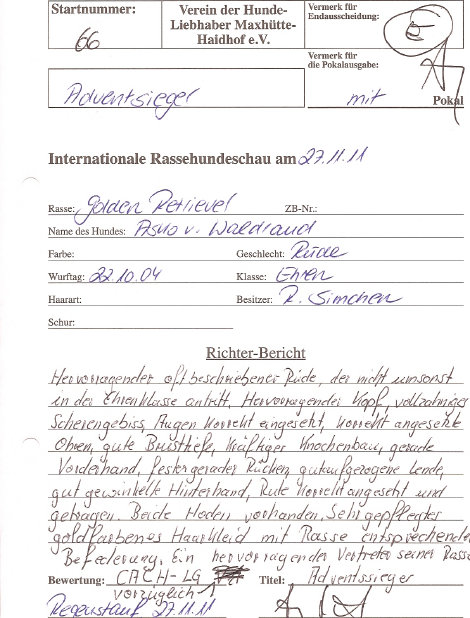 Startnummer:
66
Verein der Hunde-
Liebhaber Maxhütte-
Haidhof e.V.
Vermerk für
Endausscheidung:
Vermerk für
die Pokalausgabe:
Adventsieger
mit Pokal
Internationale Rassehundeschau am 27.11.11
Rasse: Golden Retriever ZB-Nr.:
Name des Hundes: Asko v. Waldrand
Farbe: Geschlecht: Rüde
Wurftag: 22.10.04 Klasse: Ehren
Haarart: Besitzer: R. Simchen
Schur:
Richter-Bericht
Hervorragender oft beschriebener Rüde, der nicht umsonst
in der Ehrenklasse antritt, Hervorragender Kopf, vollzahniges
Scherengebiss, Augen korrekt eingesetzt, korrekt angesetzte
Ohren, gute Brusttiefe, kräftiger Knochenbau, gerade
Vorderhand, fester gerader Rücken, gut aufgezogene Lende,
gut gewinkelte Hinterhand, Rute korrekt angesetzt und
getragen. Beide Hoden vorhanden, Sehr gepflegtes
goldfarbenes Haarkleid mit Rasse entsprechender
Befederung, Ein hervorragender Vertreter seiner Rasse
Bewertung: CACH-LG Titel: Adventssieger
vorzüglich 1
Regenstauf 27.11.11